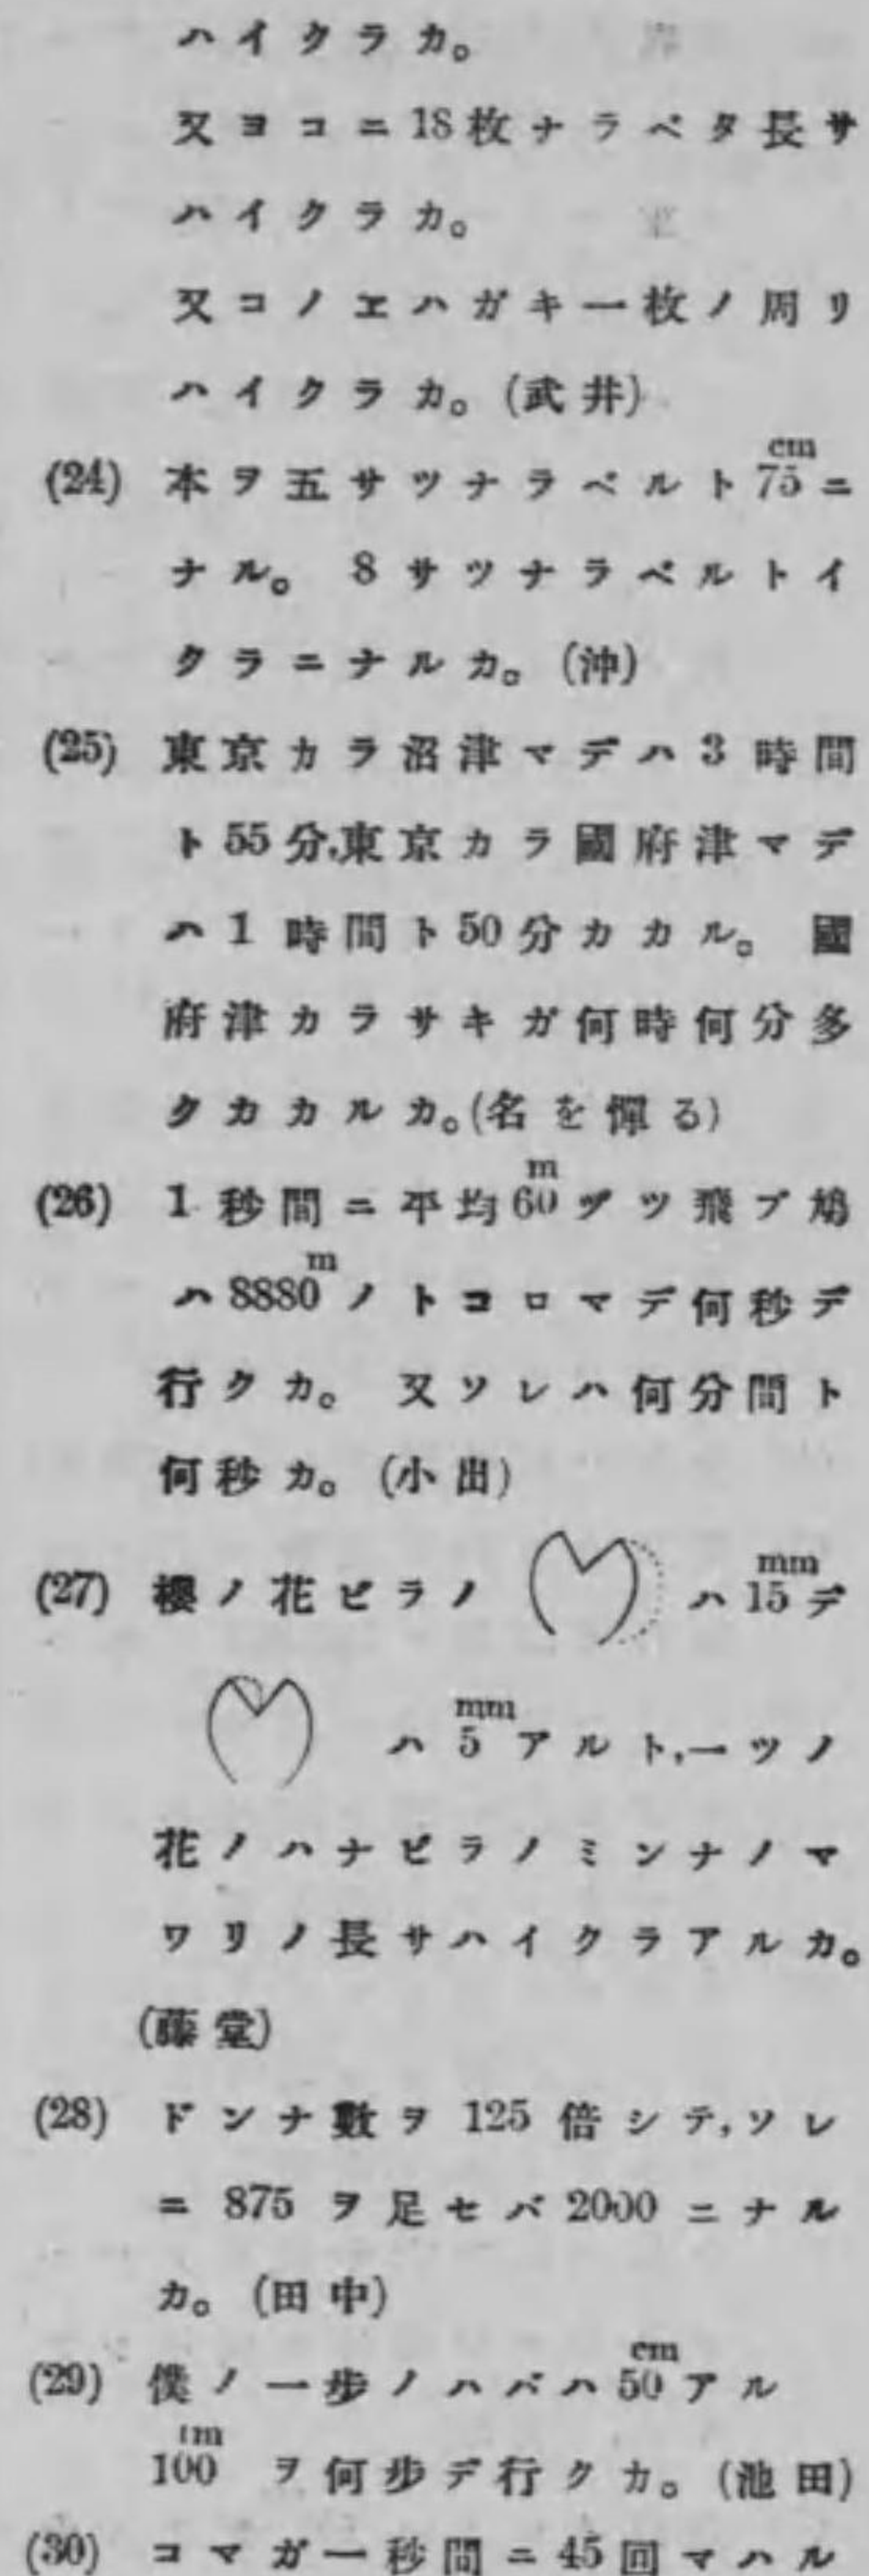 ハイクラカ。
又ヨコニ18枚ナラベタ長サ
ハイクラカ。
又コノエハガキ一枚ノ周リ
ハイクラカ。(武井)
(24) 本ヲ五サツナラベルト75cmニ
ナル。 8サツナラベルトイ
クラニナルカ。(沖)
(25) 東京カラ沼津マデハ3時間
ト55分,東京カラ國府津マデ
ハ1時間ト50分カカル。 國
府津カラサキガ何時何分多
クカカルカ。(名を憚る)
(26) 1秒間ニ平均60mヅツ飛ブ鳩
ハ8880mノトコロマデ何秒デ
行クカ。 又ソレハ何分間ト
何秒カ。(小出)
(27) 櫻ノ花ビラノ ハ15mmデ
ハ5mmアルト,一ツノ
花ノハナビラノミンナノマ
ワリノ長サハイクラアルカ。
(藤堂)
(28) ドンナ數ヲ125倍シテ,ソレ
ニ875ヲ足セバ2000ニナル
カ。(田中)
(29) 僕ノ一歩ノハバハ50cmアル
100 ヲ何歩デ行クカ。(池田)
(30) コマガ一秒間ニ45回マハル